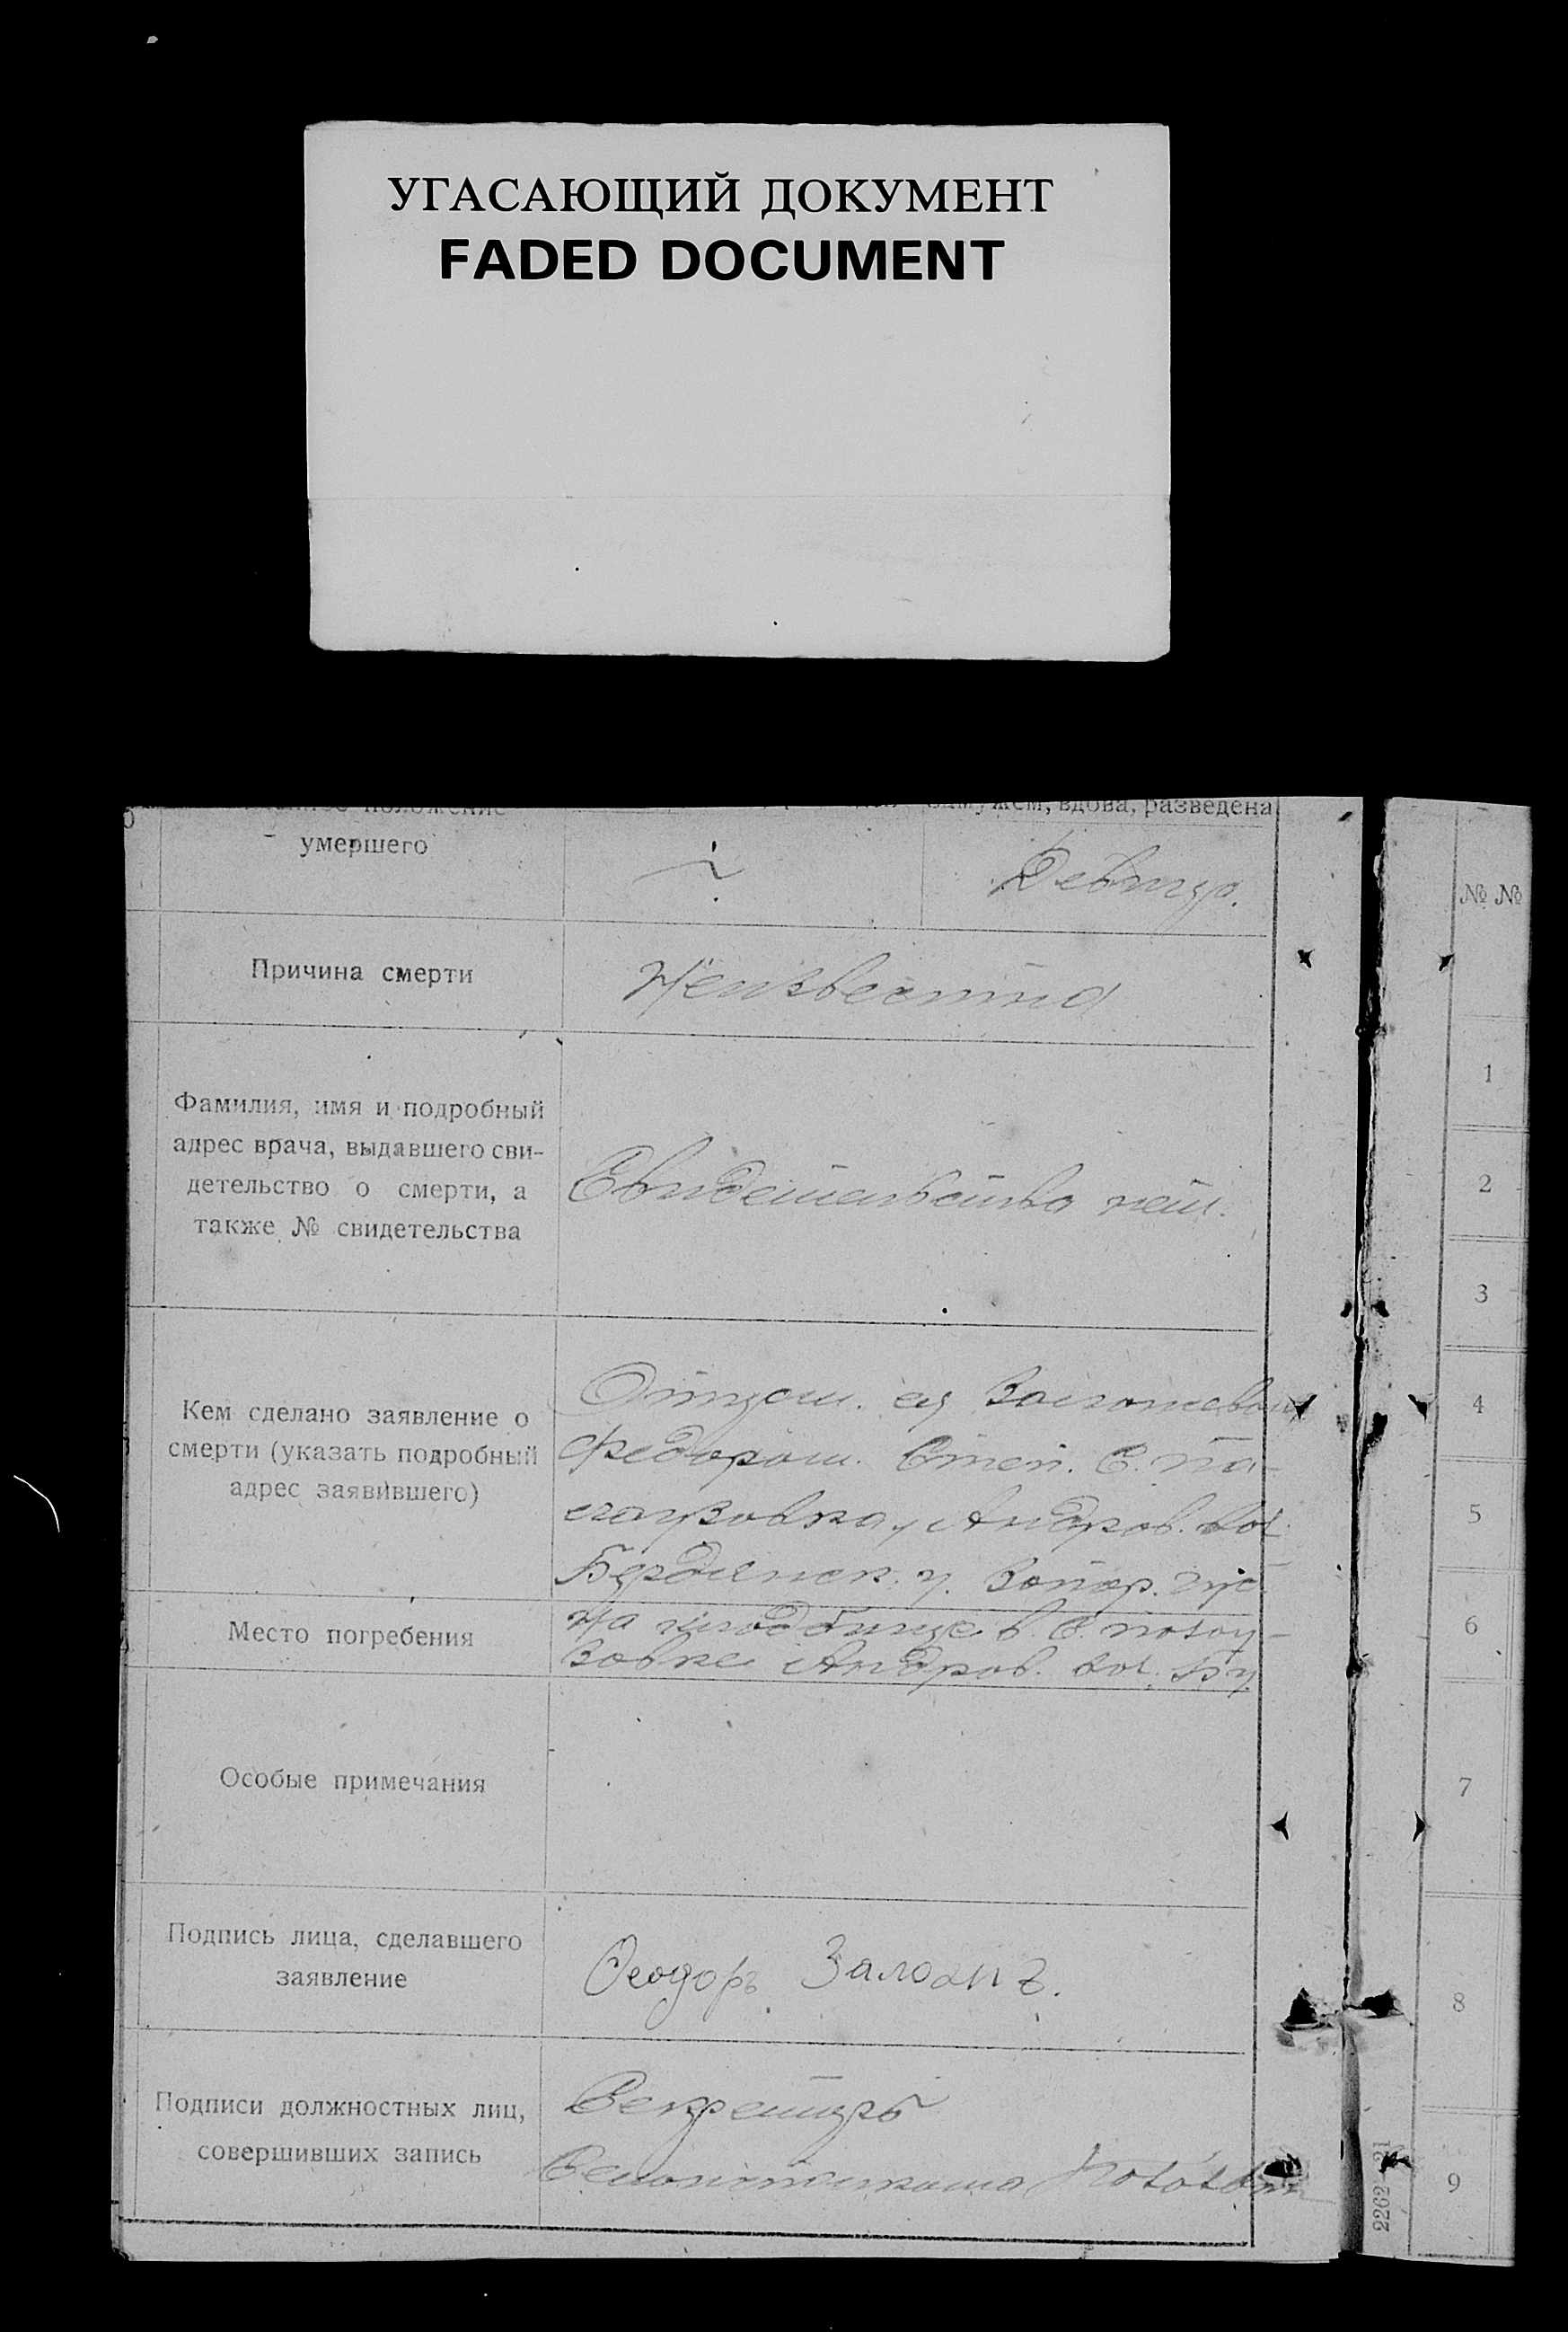 УГАСАЮЩИЙ ДОКУМЕНТ
FADED DOCUMENT
положение
замужем, вдова, разведена
умершего
Девица.
№ №
Причина смерти
Неизвестна
1
Фамилия, имя и подробный
адрес врача, выдавшего сви-
детельство о смерти, а
также № свидетельства
Свидетельства нет.
2
3
Кем сделано заявление о
смерти (указать подробный
адрес заявившего)
Отцом.
Федором. Степ. С.
Андров. вол.
Бердянск. у. Запор. губ.
4
5
Место погребения
На кладбище в С.
зовке Андров. вол. Б у.
6
Особые примечания
7
Подпись лица, сделавшего
заявление
Феодоръ
8
Подписи должностных лиц,
совершивших запись
Секретарь
9
2262